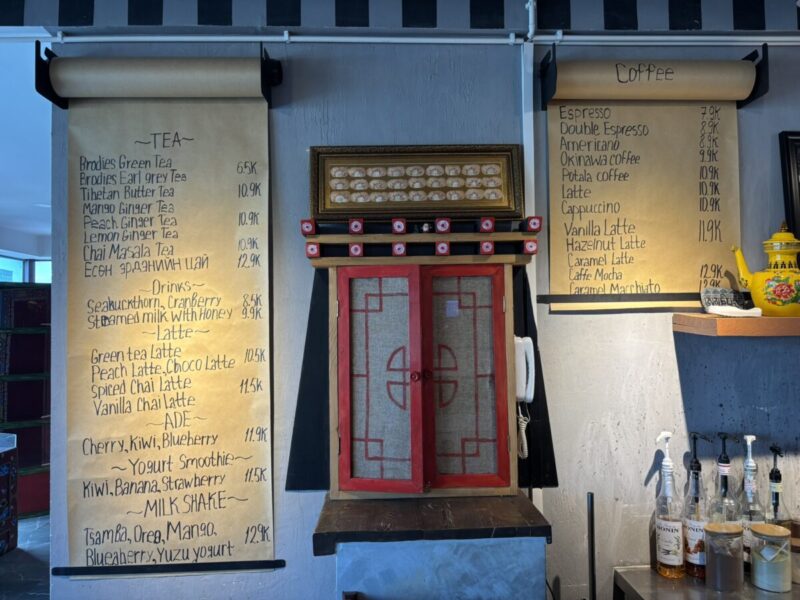 ~TEA~
Brodies Green Tea
Brodies Earl grey Tea 6.5K
Tibetan Butter Tea 10.9K
Mango Ginger Tea
Peach Ginger Tea 10.9K
Lemon Ginger Tea
Chai Masala Tea 10.9K
Есөн эрдэнийн цай 12.9K
~Drinks~
Seabuckthorn, Cranberry 8.5K
Steamed milk With Honey 9.9K
~Latte~
Green tea Latte
Peach Latte, Choco Latte 10.5K
Spiced Chai Latte
Vanilla Chai Latte 11.5K
~ADE~
Cherry, Kiwi, Blueberry 11.9K
~Yogurt Smoothie~
Kiwi, Banana, Strawberry 11.5K
~MILK SHAKE~
Tsamba, Oreo, Mango,
Blueaberry, Yuzu yogurt 12.9K
Coffee
Espresso 7.9K
Double Espresso 8.9K
Americano 8.9K
Okinawa coffee 9.9K
Potala coffee 10.9K
Latte 10.9K
Cappuccino 10.9K
Vanilla Latte 11.9K
Hazelnut Latte
Caramel Latte
Caffe Mocha 12.9K
Caramel Macchiato 12.9K
MONIN
MONIN